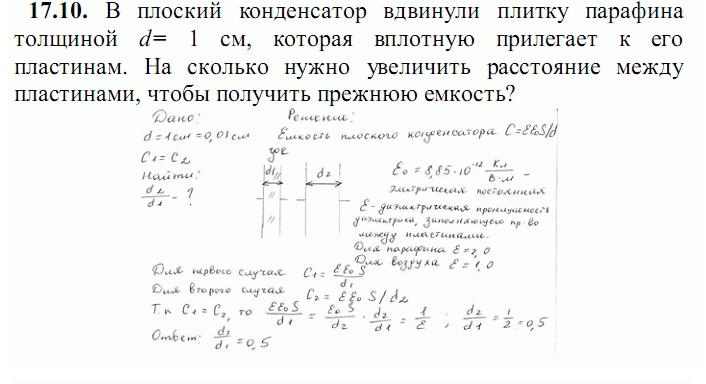 17.10. В плоский конденсатор вдвинули плитку парафина
толщиной d= 1 см, которая вплотную прилегает к его
пластинам. На сколько нужно увеличить расстояние между
пластинами, чтобы получить прежнюю емкость?
Дано: Решение:
d = 1см = 0,01см Емкость плоского конденсатора C=εε₀S/d
C₁ = C₂ где
Найти: d₁ d₂ ε₀ = 8,85·10⁻¹² Кл/В·м –
d₂/d₁ - ? электрическая постоянная
ε - диэлектрическая проницаемость
диэлектрика, заполняющего пр-во
между пластинами.
Для парафина ε = 2,0
Для воздуха ε = 1,0
Для первого случая C₁ = εε₀S/d₁
Для второго случая C₂ = εε₀ S/d₂
Т.к C₁ = C₂, то εε₀S/d₁ = ε₀S/d₂ · d₂/d₁ = 1/ε ; d₂/d₁ = 1/2 = 0,5
Ответ: d₂/d₁ = 0,5